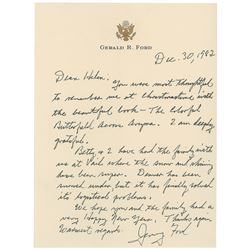 GERALD R. FORD
Dec. 30, 1982
Dear Helen: You were most thoughtful
to remember me at Christmastime with
the beautiful book - The Colorful
Butterfield Across Arizona. I am deeply
grateful.
Betty & I have had the family with
us at Vail where the snow and skiing
have been super. Denver has been
snowed under but it has finally solved
its logistical problems.
We hope you and the family had a
very Happy New Year. Thanks again.
Warmest regards,
Jerry Ford